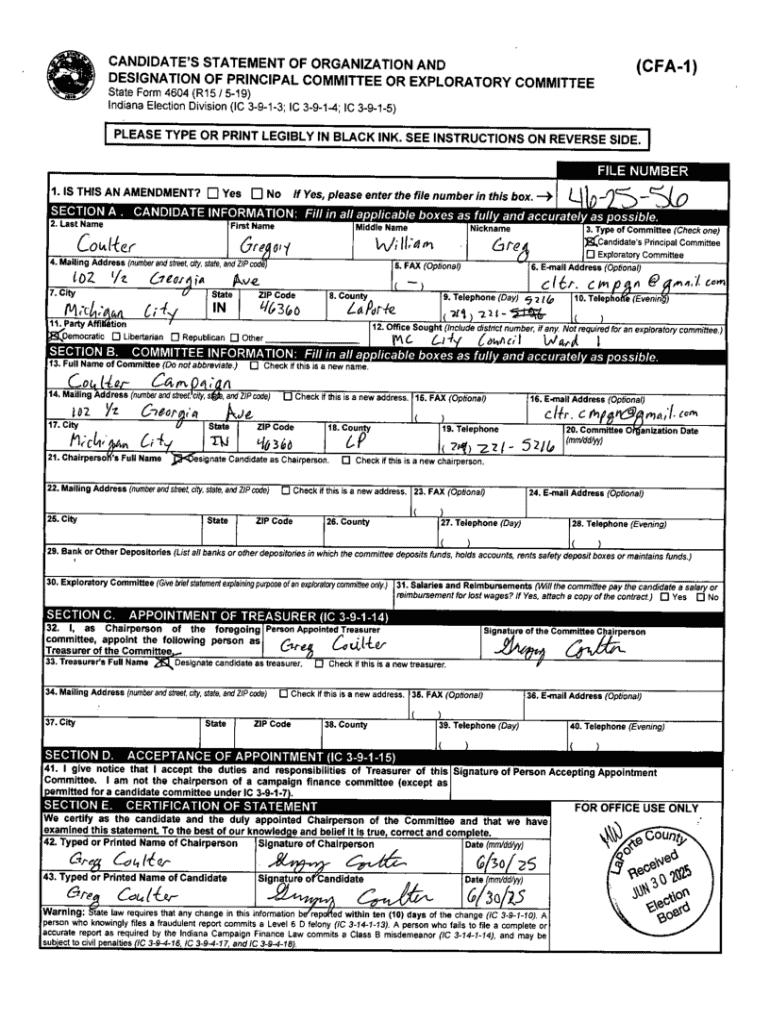 CANDIDATE'S STATEMENT OF ORGANIZATION AND
(CFA-1)
DESIGNATION OF PRINCIPAL COMMITTEE OR EXPLORATORY COMMITTEE
State Form 4604 (R15 / 5-19)
Indiana Election Division (IC 3-9-1-3; IC 3-9-1-4; IC 3-9-1-5)
PLEASE TYPE OR PRINT LEGIBLY IN BLACK INK. SEE INSTRUCTIONS ON REVERSE SIDE.
FILE NUMBER
1. IS THIS AN AMENDMENT? ☐ Yes ☐ No If Yes, please enter the file number in this box. → 46-25-56
SECTION A. CANDIDATE INFORMATION: Fill in all applicable boxes as fully and accurately as possible.
2. Last Name First Name Middle Name Nickname 3. Type of Committee (Check one)
Coulter Gregory William Greg ☒ Candidate's Principal Committee
☐ Exploratory Committee
4. Mailing Address (number and street, city, state, and ZIP code) 5. FAX (Optional) 6. E-mail Address (Optional)
102 1/2 Georgia Ave ( - ) cltr.cmpgn@gmail.com
7. City State ZIP Code 8. County 9. Telephone (Day) 5216 10. Telephone (Evening)
Michigan City IN 46360 LaPorte (219) 221- ( )
11. Party Affiliation 12. Office Sought (Include district number, if any. Not required for an exploratory committee.)
☒ Democratic ☐ Libertarian ☐ Republican ☐ Other MC City Council Ward 1
SECTION B. COMMITTEE INFORMATION: Fill in all applicable boxes as fully and accurately as possible.
13. Full Name of Committee (Do not abbreviate.) ☐ Check if this is a new name.
Coulter Campaign
14. Mailing Address (number and street, city, state, and ZIP code) ☐ Check if this is a new address. 15. FAX (Optional) 16. E-mail Address (Optional)
102 1/2 Georgia Ave ( ) cltr.cmpgn@gmail.com
17. City State ZIP Code 18. County 19. Telephone 20. Committee Organization Date
Michigan City IN 46360 LP (219) 221-5216 (mm/dd/yy)
21. Chairperson's Full Name ☒ Designate Candidate as Chairperson. ☐ Check if this is a new chairperson.
22. Mailing Address (number and street, city, state, and ZIP code) ☐ Check if this is a new address. 23. FAX (Optional) 24. E-mail Address (Optional)
( )
25. City State ZIP Code 26. County 27. Telephone (Day) 28. Telephone (Evening)
( ) ( )
29. Bank or Other Depositories (List all banks or other depositories in which the committee deposits funds, holds accounts, rents safety deposit boxes or maintains funds.)
30. Exploratory Committee (Give brief statement explaining purpose of an exploratory committee only.) 31. Salaries and Reimbursements (Will the committee pay the candidate a salary or
reimbursement for lost wages? If Yes, attach a copy of the contract.) ☐ Yes ☐ No
SECTION C. APPOINTMENT OF TREASURER (IC 3-9-1-14)
32. I, as Chairperson of the foregoing Person Appointed Treasurer Signature of the Committee Chairperson
committee, appoint the following person as Greg Coulter Gregory Coulter
Treasurer of the Committee.
33. Treasurer's Full Name ☒ Designate candidate as treasurer. ☐ Check if this is a new treasurer.
34. Mailing Address (number and street, city, state, and ZIP code) ☐ Check if this is a new address. 35. FAX (Optional) 36. E-mail Address (Optional)
( )
37. City State ZIP Code 38. County 39. Telephone (Day) 40. Telephone (Evening)
( ) ( )
SECTION D. ACCEPTANCE OF APPOINTMENT (IC 3-9-1-15)
41. I give notice that I accept the duties and responsibilities of Treasurer of this Signature of Person Accepting Appointment
Committee. I am not the chairperson of a campaign finance committee (except as
permitted for a candidate committee under IC 3-9-1-7).
SECTION E. CERTIFICATION OF STATEMENT FOR OFFICE USE ONLY
We certify as the candidate and the duly appointed Chairperson of the Committee and that we have
examined this statement. To the best of our knowledge and belief it is true, correct and complete.
42. Typed or Printed Name of Chairperson Signature of Chairperson Date (mm/dd/yy)
Greg Coulter Gregory Coulter 6/30/25
43. Typed or Printed Name of Candidate Signature of Candidate Date (mm/dd/yy)
Greg Coulter Gregory Coulter 6/30/25
MW
LaPorte County
Received
JUN 30 2025
Election
Board
Warning: State law requires that any change in this information be reported within ten (10) days of the change (IC 3-9-1-10). A
person who knowingly files a fraudulent report commits a Level 6 D felony (IC 3-14-1-13). A person who fails to file a complete or
accurate report as required by the Indiana Campaign Finance Law commits a Class B misdemeanor (IC 3-14-1-14), and may be
subject to civil penalties (IC 3-9-4-16, IC 3-9-4-17, and IC 3-9-4-18).